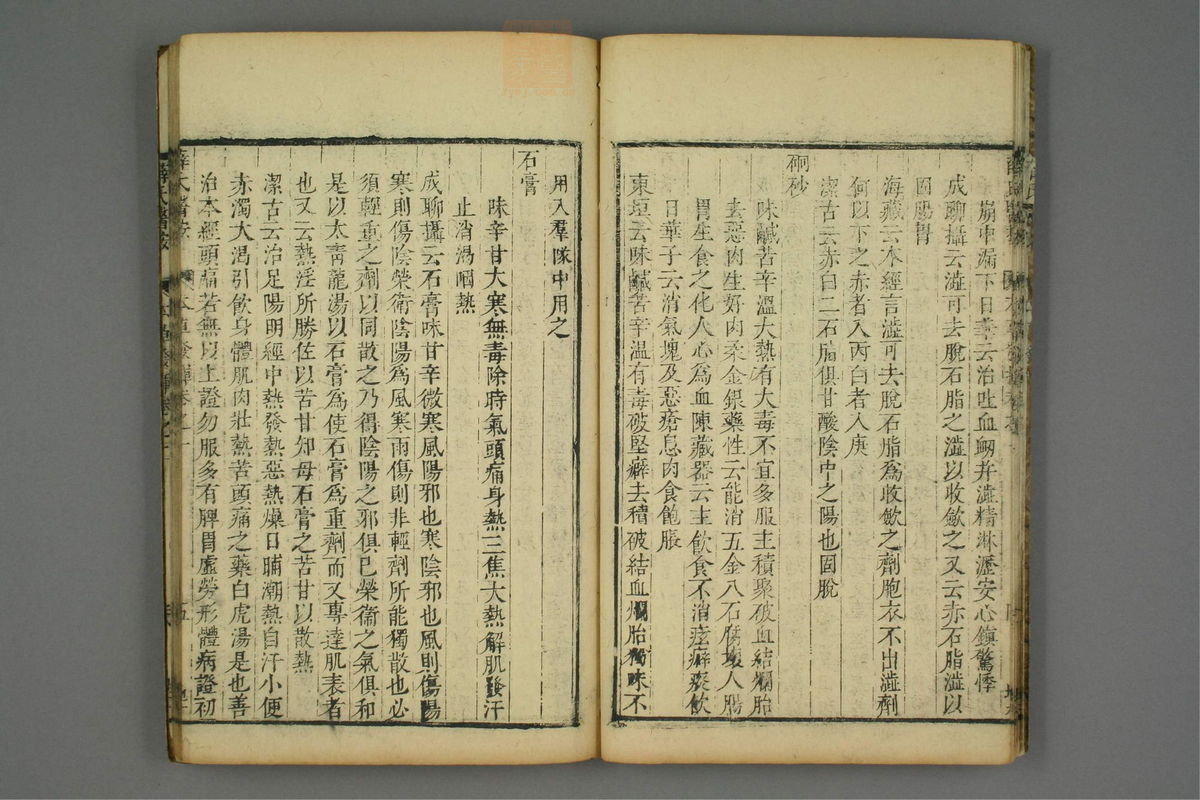 崩中漏下日華云治吐血衂并澁精淋瀝安心鎮驚悸
成聊攝云澁可去脫石脂之澁以收歛之又云赤石脂澁以
固腸胃
海藏云本經言澁可去脫石脂為收歛之劑胞衣不出澁劑
何以下之赤者入丙白者入庚
潔古云赤白二石脂俱甘酸陰中之陽也固脫
硇砂
味鹹苦辛溫大熱有大毒不宜多服主積聚破血結爛胎
去惡肉生好肉柔金銀藥性云能消五金八石腐壞人腸
胃生食之化人心為血陳藏器云主飲食不消痃癖痰飲
日華子云消氣塊及惡瘡息肉食飽脹
東垣云味鹹苦辛温有毒破堅癖去積破結血爛胎獨味不
用入羣隊中用之
石膏
味辛甘大寒無毒除時氣頭痛身熱三焦大熱解肌發汗
止消渴咽熱
成聊攝云石膏味甘辛微寒風陽邪也寒陰邪也風則傷陽
寒則傷陰榮衛陰陽為風寒雨傷則非輕劑所能獨散也必
須輕重之劑以同散之乃得陰陽之邪俱巳榮衞之氣俱和
是以大青龍湯以石膏為使石膏為重劑而又專達肌表者
也又云熱淫所勝佐以苦甘知母石膏之苦甘以散熱
潔古云治足陽明經中熱發熱惡熱燥日晡潮熱自汗小便
赤濁大渴引飲身體肌肉壯熱苦頭痛之藥白虎湯是也善
治本經頭痛若無以上證勿服多有脾胃虛勞形體病證初
薛氏醫按
本草發揮卷之一
五